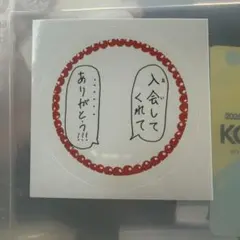 入会して
くれて
・・・・・・
ありがとう!!!
KC